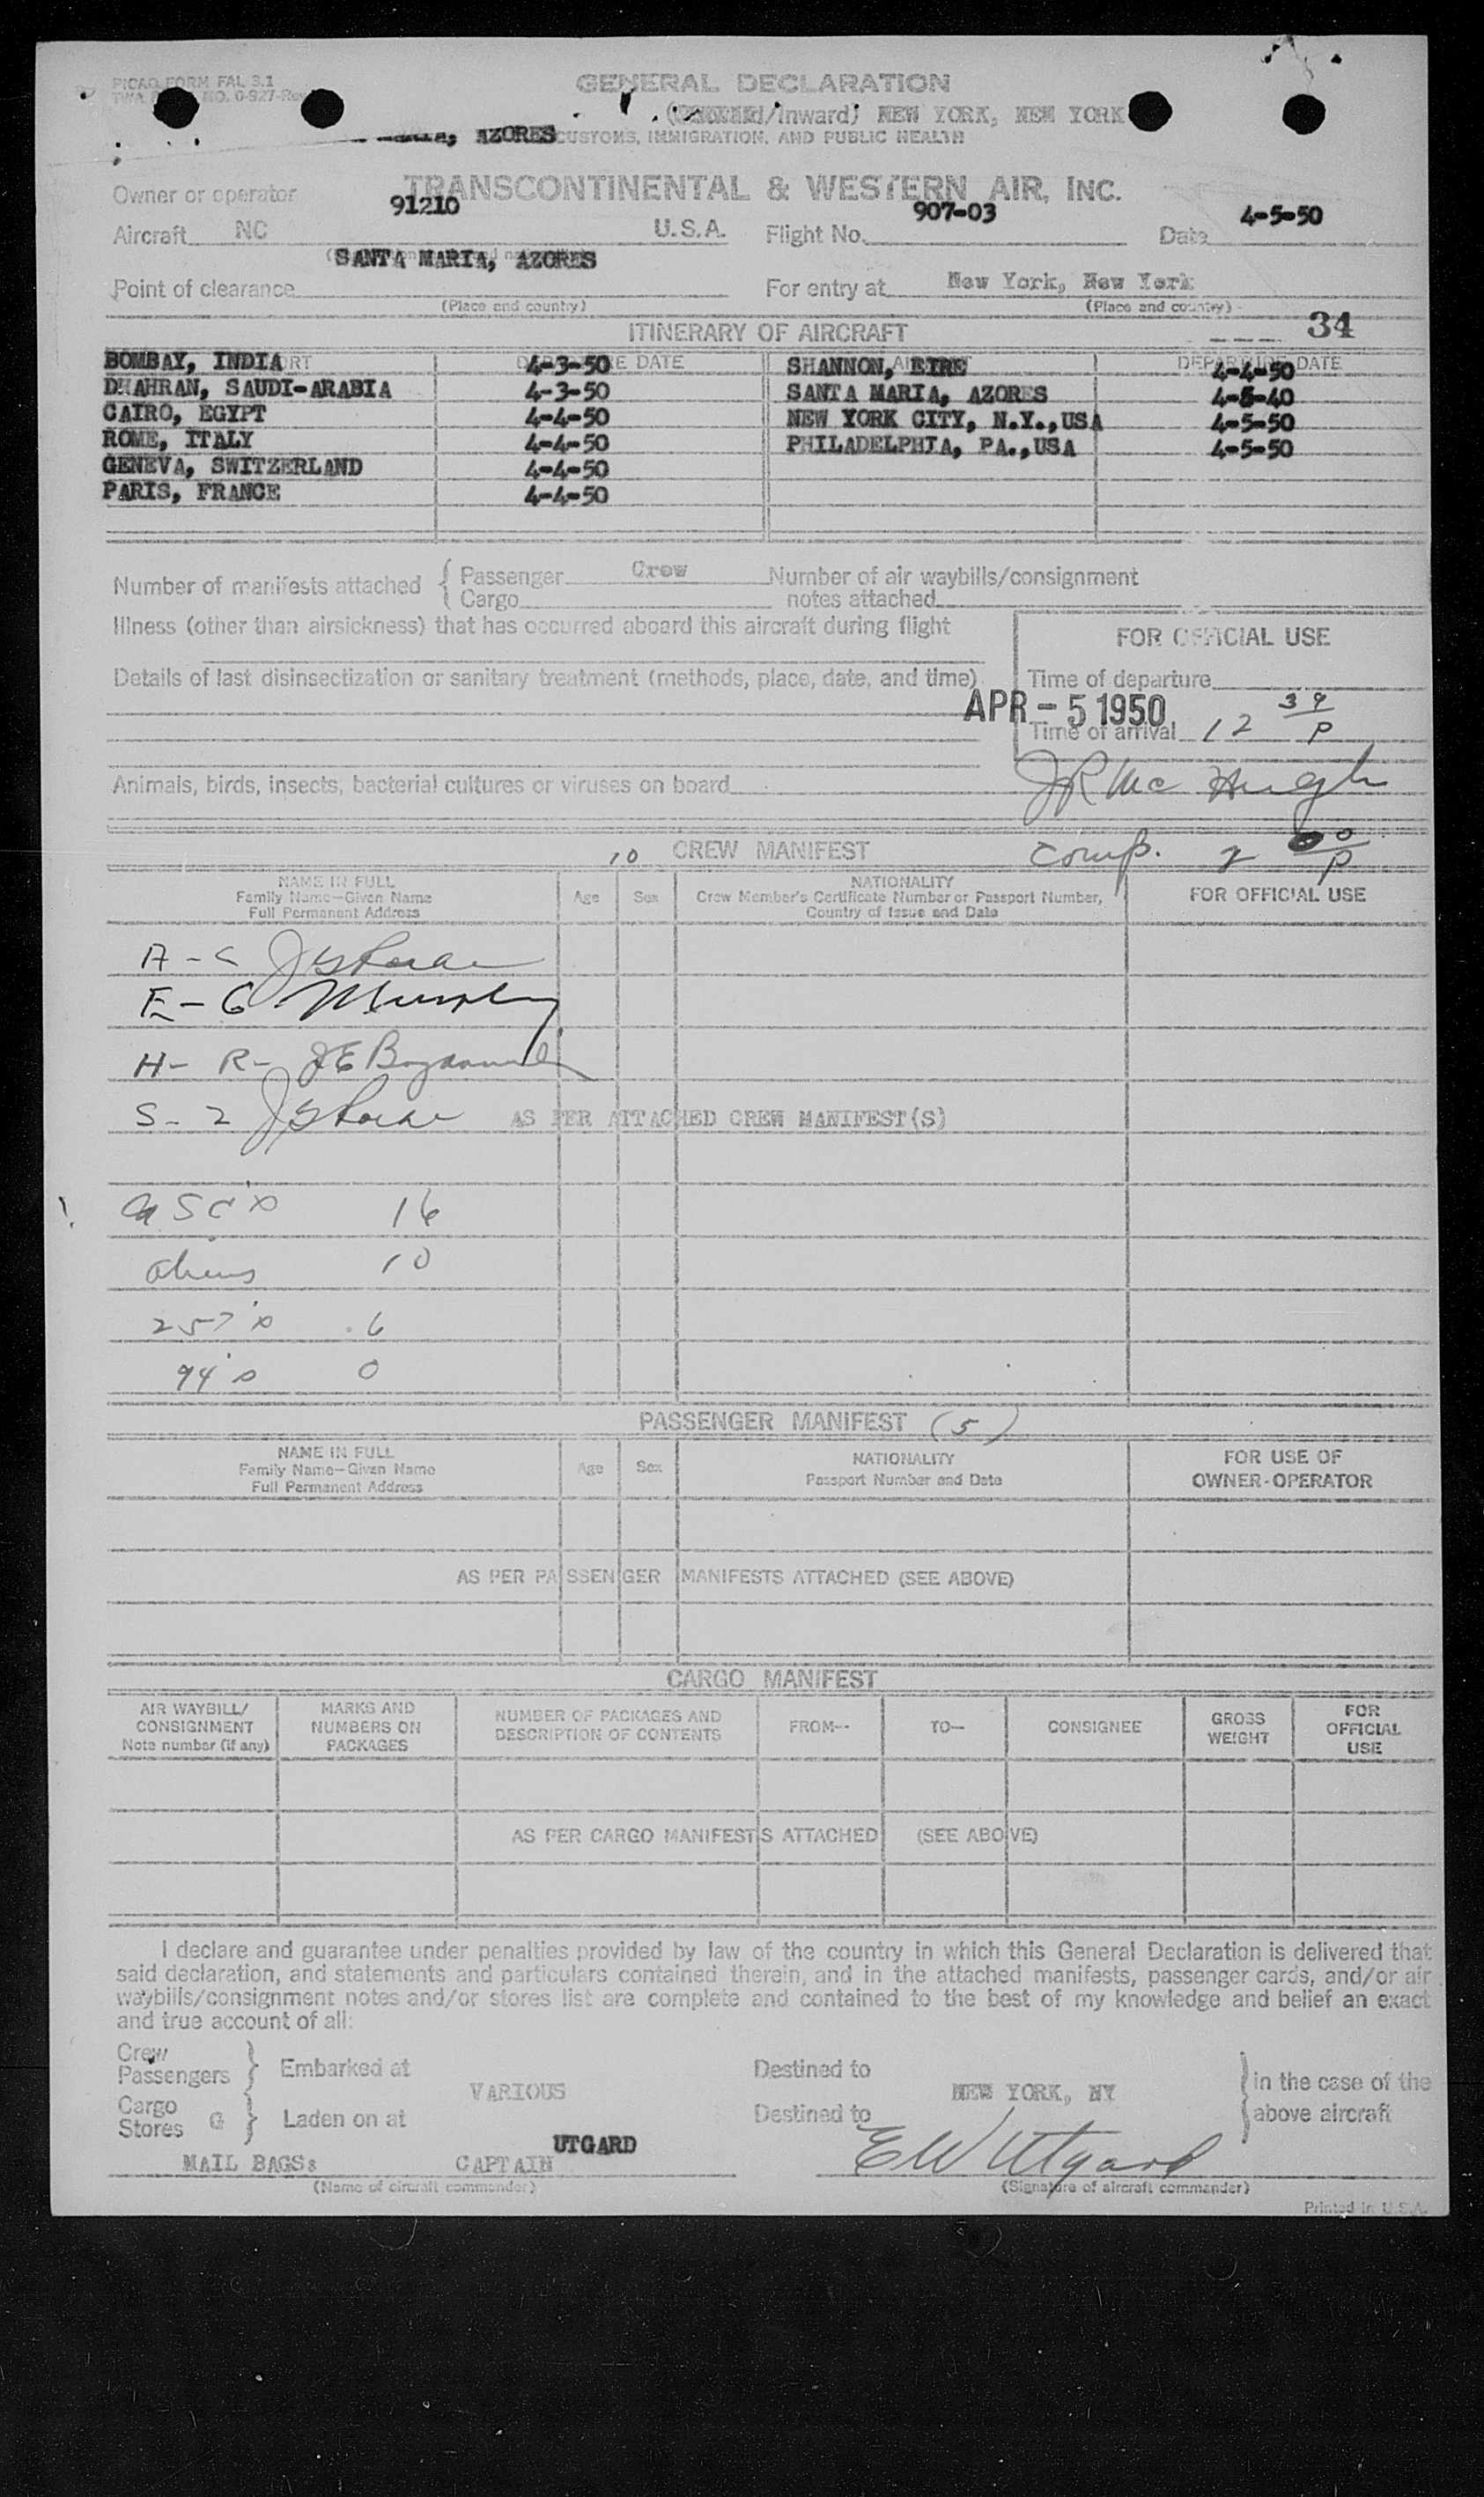 PICAO FORM FAL 3.1
GENERAL DECLARATION
/Inward) NEW YORK, NEW YORK
AZORES
CUSTOMS, IMMIGRATION, AND PUBLIC HEALTH
Owner or operator TRANSCONTINENTAL & WESTERN AIR, INC.
Aircraft NC 91210 U.S.A. Flight No. 907-03 Date 4-5-50
Point of clearance SANTA MARIA, AZORES For entry at New York, New York
(Place and country) (Place and country)
ITINERARY OF AIRCRAFT 34
BOMBAY, INDIA 4-3-50 SHANNON, EIRE 4-4-50
DHAHRAN, SAUDI-ARABIA 4-3-50 SANTA MARIA, AZORES 4-5-40
CAIRO, EGYPT 4-4-50 NEW YORK CITY, N.Y.,USA 4-5-50
ROME, ITALY 4-4-50 PHILADELPHIA, PA.,USA 4-5-50
GENEVA, SWITZERLAND 4-4-50
PARIS, FRANCE 4-4-50
Number of manifests attached { Passenger Crew Number of air waybills/consignment
Cargo notes attached
Illness (other than airsickness) that has occurred aboard this aircraft during flight
FOR OFFICIAL USE
Details of last disinsectization or sanitary treatment (methods, place, date, and time) Time of departure
APR - 5 1950
Time of arrival 12 39 P
Animals, birds, insects, bacterial cultures or viruses on board JR Mc Hugh
10 CREW MANIFEST Comp. 2 00 P
NAME IN FULL Age Sex NATIONALITY FOR OFFICIAL USE
Family Name—Given Name Crew Member's Certificate Number or Passport Number,
Full Permanent Address Country of Issue and Date
A - C
E - G Murphy
H - R -
S - Z AS PER ATTACHED CREW MANIFEST(S)
USC's 16
aliens 10
257's 6
94's 0
PASSENGER MANIFEST (5)
NAME IN FULL Age Sex NATIONALITY FOR USE OF
Family Name—Given Name Passport Number and Date OWNER-OPERATOR
Full Permanent Address
AS PER PASSENGER MANIFESTS ATTACHED (SEE ABOVE)
CARGO MANIFEST
AIR WAYBILL/ MARKS AND NUMBER OF PACKAGES AND FROM-- TO— CONSIGNEE GROSS FOR
CONSIGNMENT NUMBERS ON DESCRIPTION OF CONTENTS WEIGHT OFFICIAL
Note number (if any) PACKAGES USE
AS PER CARGO MANIFESTS ATTACHED (SEE ABOVE)
I declare and guarantee under penalties provided by law of the country in which this General Declaration is delivered that
said declaration, and statements and particulars contained therein, and in the attached manifests, passenger cards, and/or air
waybills/consignment notes and/or stores list are complete and contained to the best of my knowledge and belief an exact
and true account of all:
Crew
Passengers } Embarked at VARIOUS Destined to NEW YORK, NY } in the case of the
Cargo
Stores G } Laden on at Destined to above aircraft
MAIL BAGS: CAPTAIN UTGARD EW Utgard
(Name of aircraft commander) (Signature of aircraft commander)
Printed in U.S.A.